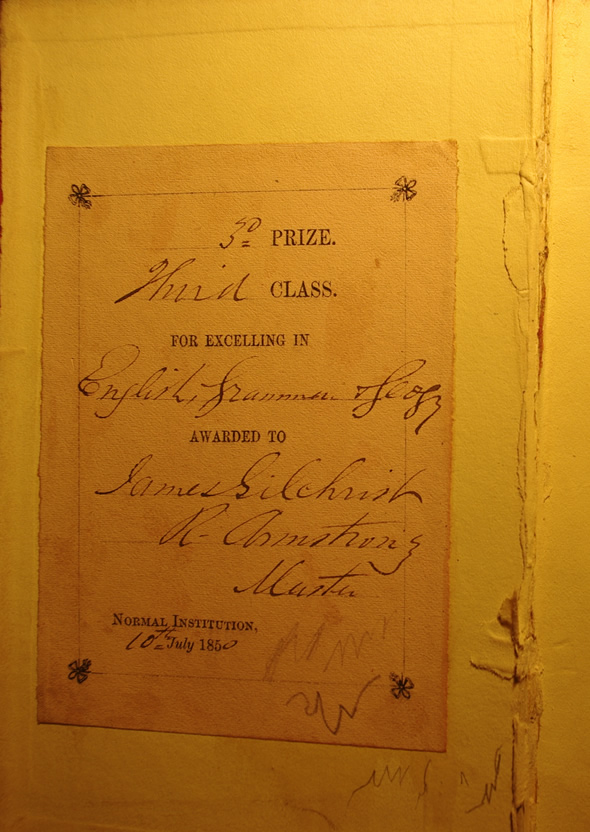 3D PRIZE.
Third CLASS.
FOR EXCELLING IN
English, Grammar & Geogy
AWARDED TO
James Gilchrist
R. Armstrong
Master
NORMAL INSTITUTION,
10th July 1850